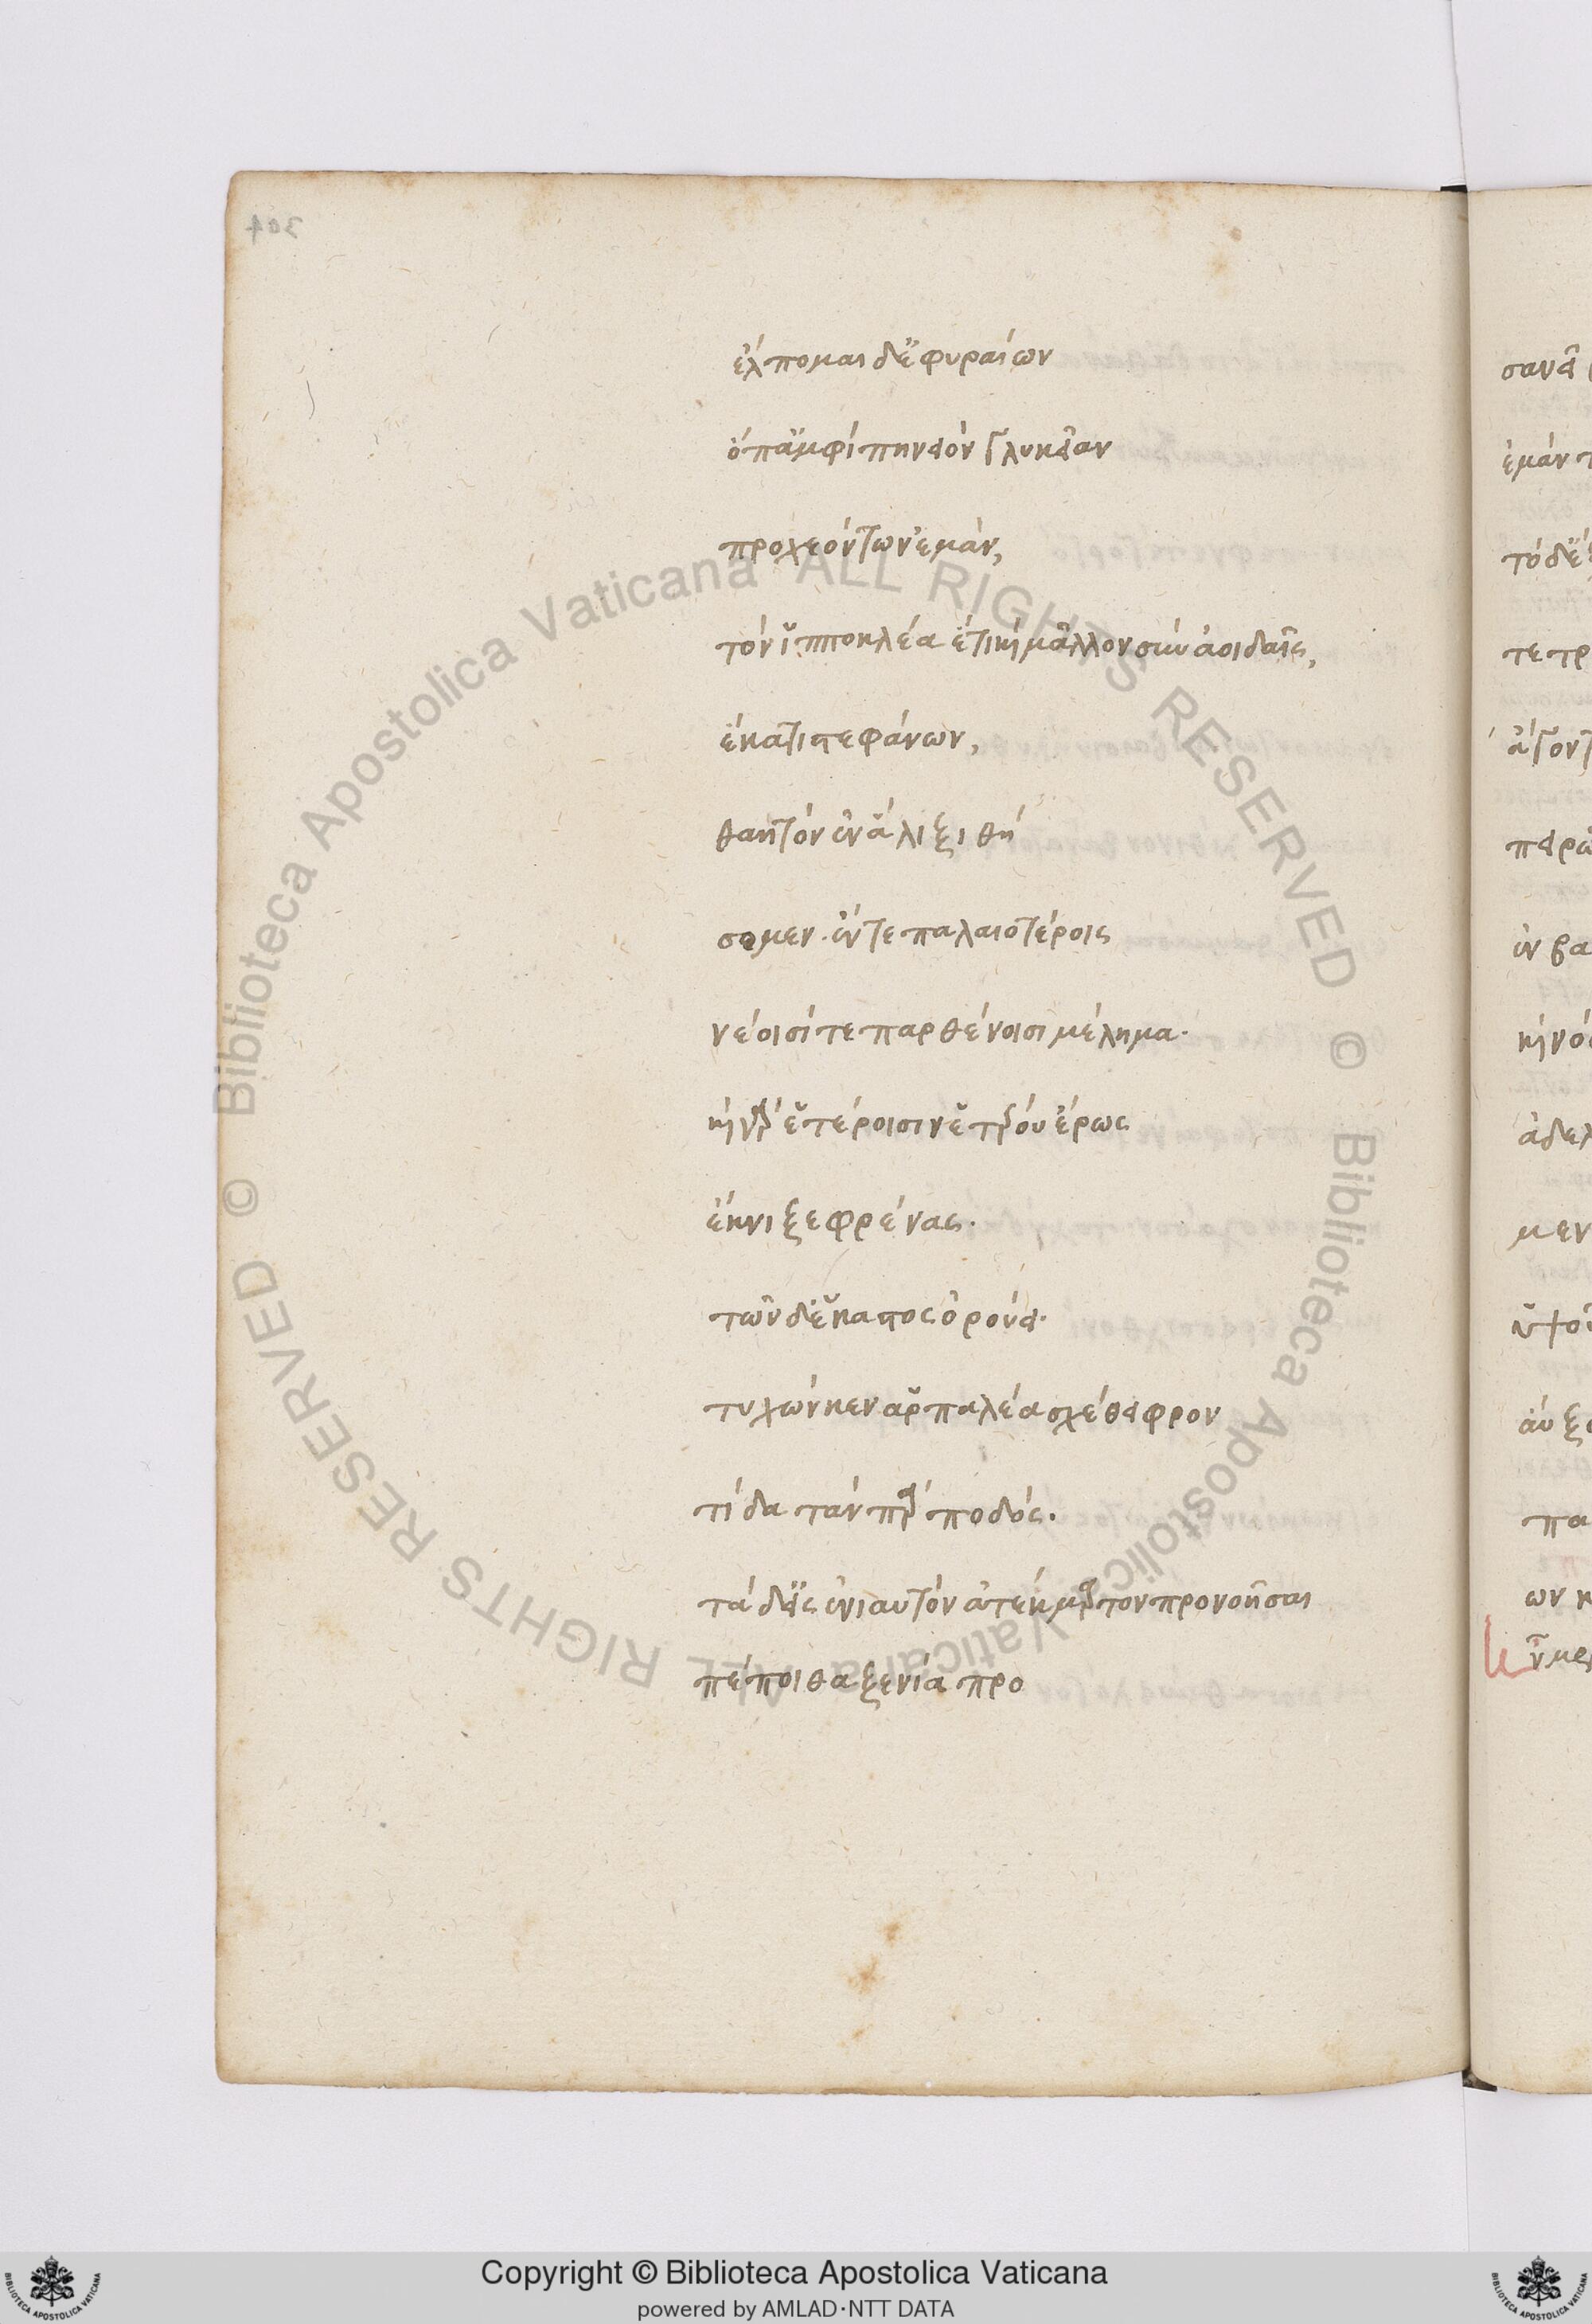 304
ἔλπομαι δ' ἐφυραίων
ὄπ' ἀμφὶ πηνειὸν γλυκεῖαν
προχεόντων ἐμὰν,
τὸν ἱπποκλέα ἔτι καὶ μᾶλλον σὺν ἀοιδαῖς,
ἕκατι στεφάνων,
θαητὸν ἐν ἅλιξι θη
σομεν· ἔν τε παλαιοτέροις
νέοισί τε παρθένοισι μέλημα·
καὶ γὰρ ἑτέροισιν ἑτέρου ἔρως
ἔκνιξε φρένας·
τῶν δ' ἕκαστος ὀρούει·
τυχών κεν ἁρπαλέα σχέθει φρον
τίδα τὰν παρ ποδός.
τὰ δ' εἰς ἐνιαυτὸν ἀτέκμαρτον προνοῆσαι
πέποιθα ξενία προ
σανεῖ
ἐμὰν
τόδ' ἐ
τετρ
ἀγοντ
πειρώ
ἐν βα
καὶ νό
ἀδελ
μεν
ὑψοῦ
αὔξ
πα
ων κ
Copyright © Biblioteca Apostolica Vaticana
powered by AMLAD·NTT DATA
© Biblioteca Apostolica Vaticana ALL RIGHTS RESERVED © Biblioteca Apostolica Vaticana ALL RIGHTS RESERVED